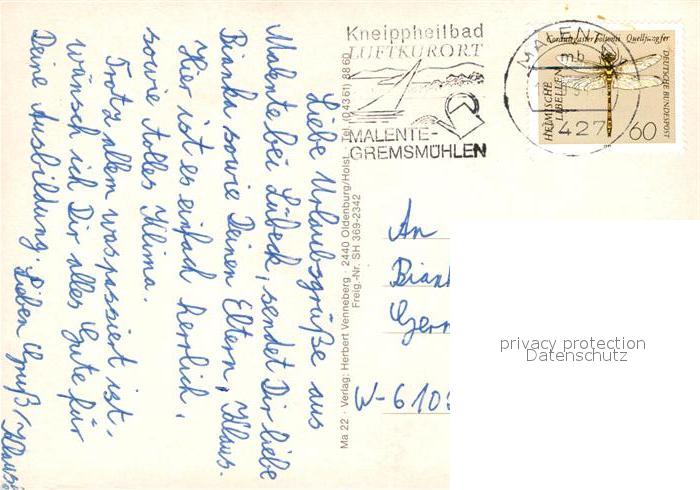 Liebe Urlaubsgrüße aus
Malente bei Lübeck, sendet Dir liebe
Bianka sowie Deinen Eltern, Klaus.
Hier ist es einfach herrlich,
sowie tolles Klima.
Trotz allem was passiert ist,
wünsch ich Dir alles Gute für
Deine Ausbildung.
Lieben Gruß, Klaus
Ma 22 · Verlag: Herbert Venneberg · 2440 Oldenburg/Holst · Tel. (0 43 61) 88 60
Freig.-Nr. SH 369-2342
Kneippheilbad
LUFTKURORT
MALENTE-
GREMSMÜHLEN
MALEN
mb
427
Quelljungfer
HEIMISCHE
LIBELLEN
DEUTSCHE BUNDESPOST
60
An
Bian
Ger
W-610
privacy protection
Datenschutz